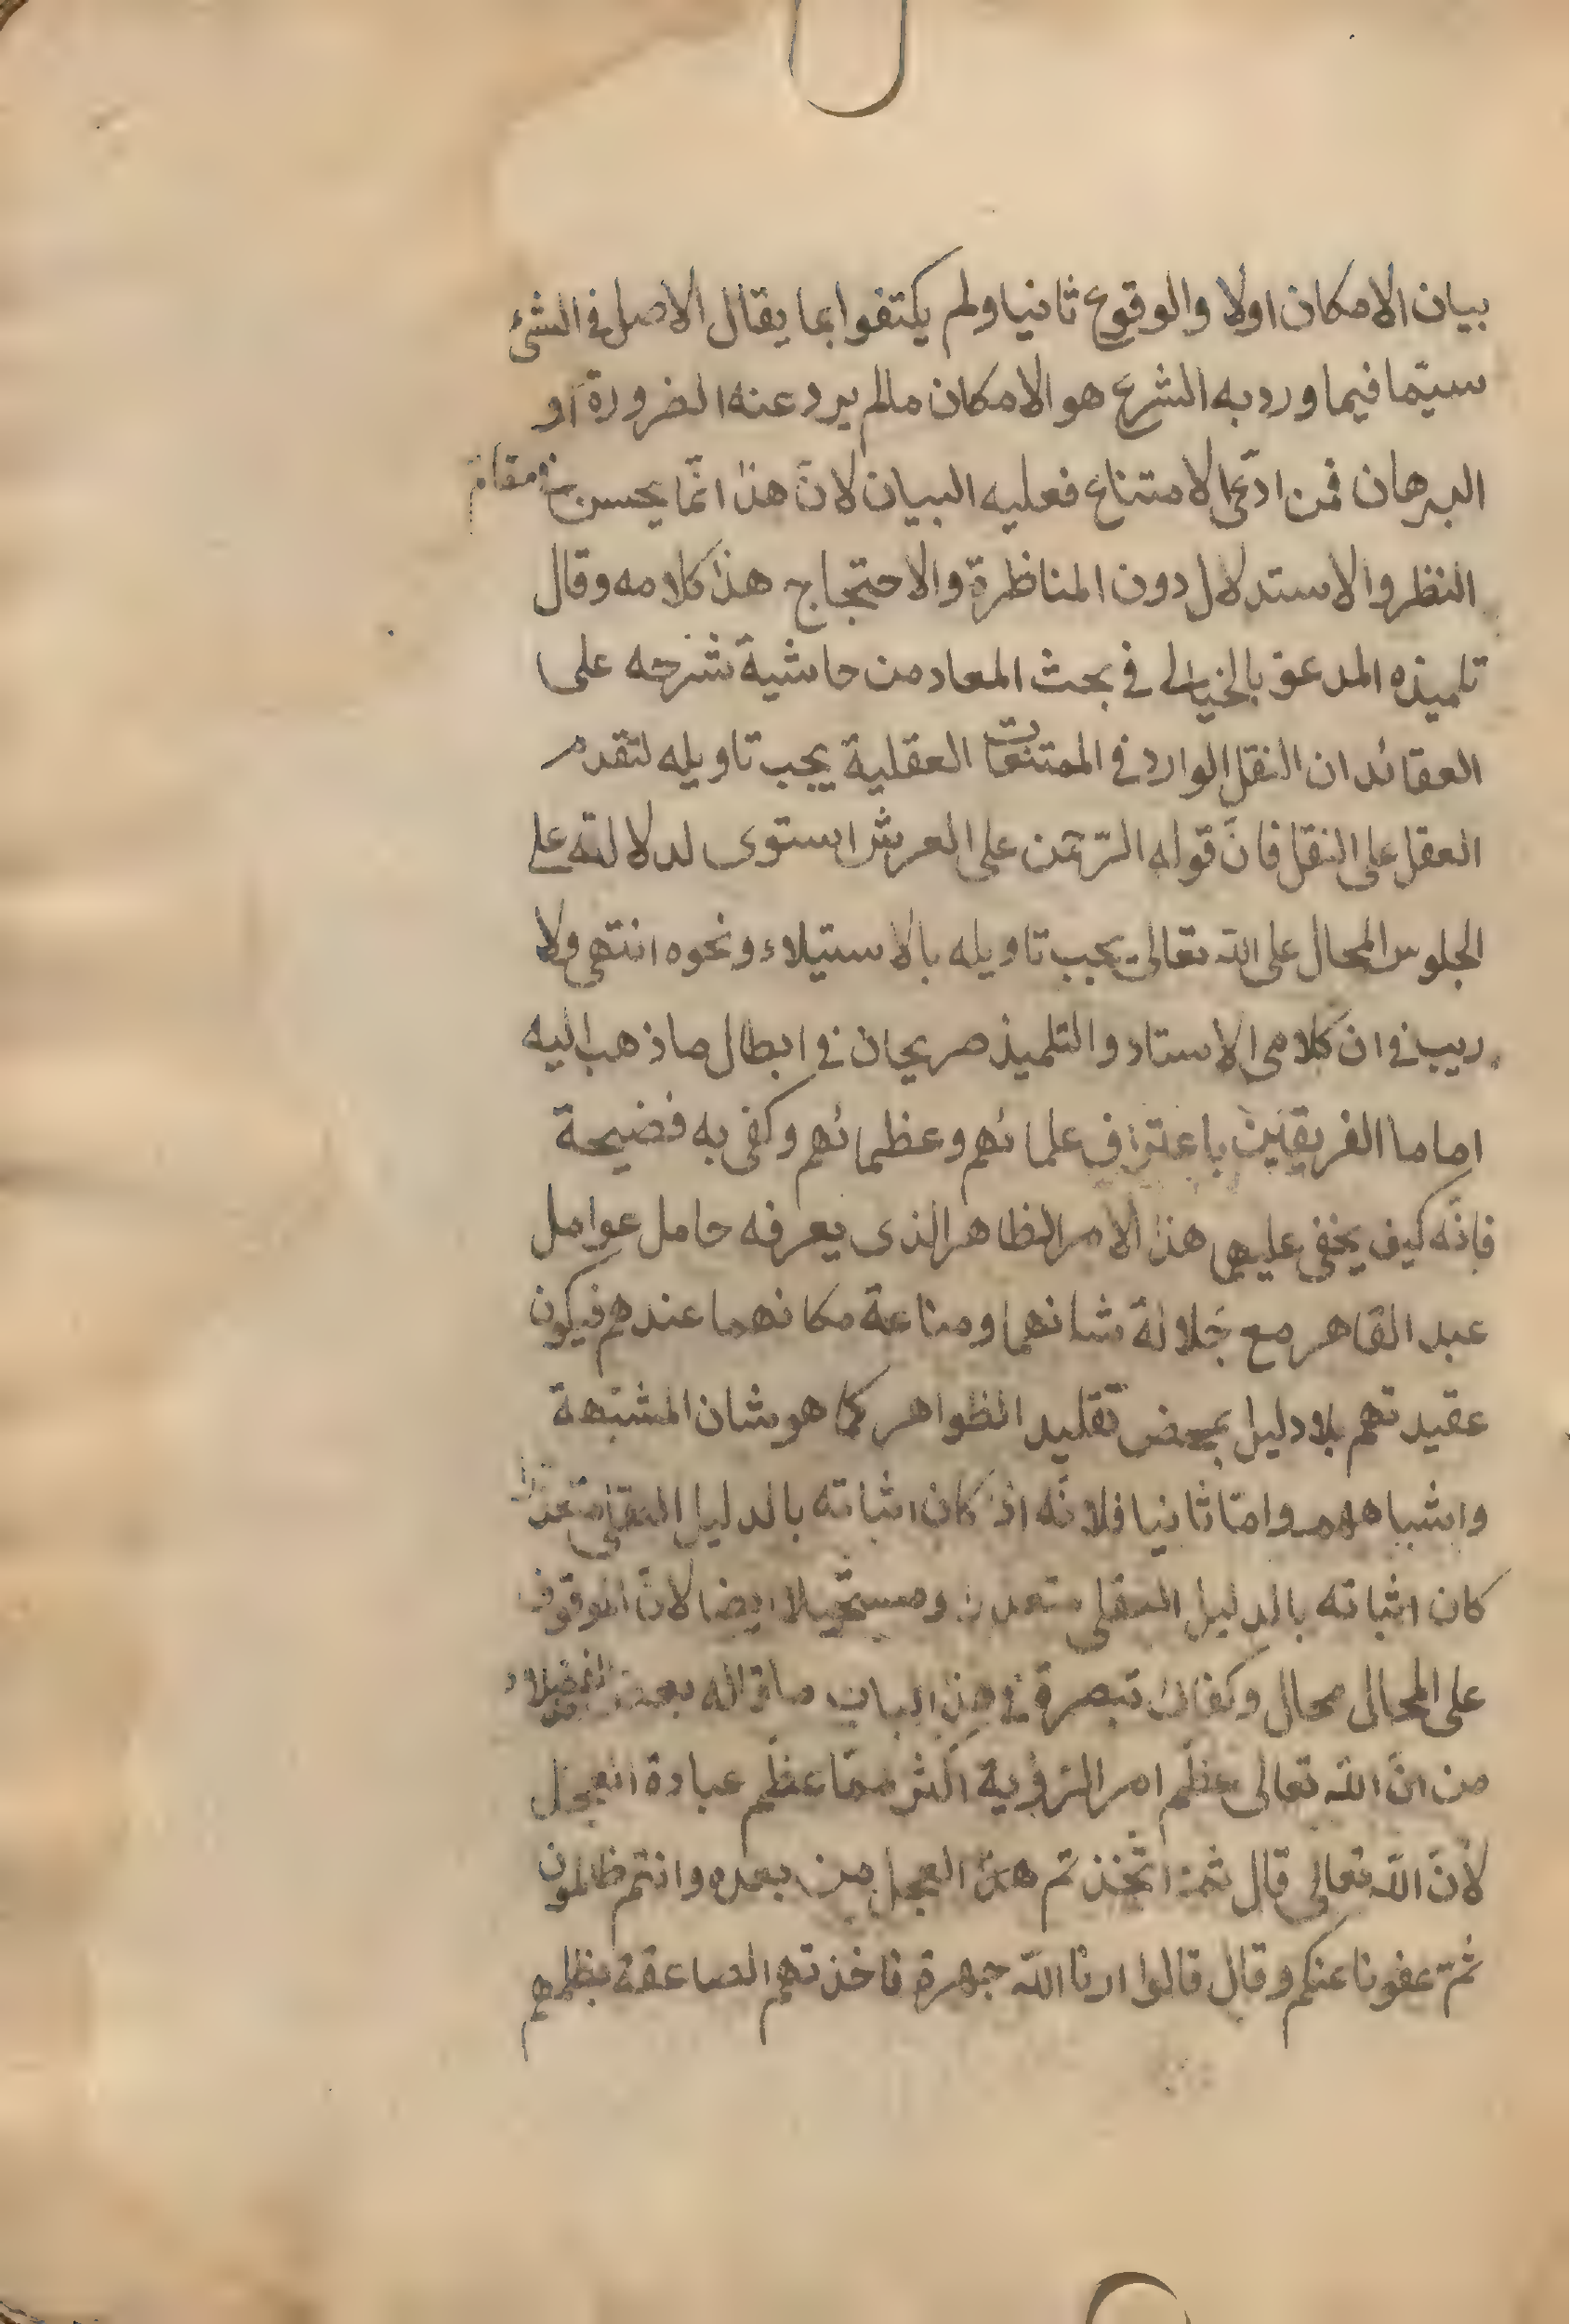 بيان الامكان اولا والوقوع ثانيا ولم يكتفوا بما يقال الاصل في الشئ
سيّما فيما ورد به الشرع هو الامكان مالم يرد عنه الضرورة او
البرهان فمن ادّعى الامتناع فعليه البيان لانّ هذا انّما يحسن في مقام
النظر والاستدلال دون المناظرة والاحتجاج هذا كلامه وقال
تلميذه المدعو بالخيالى في بحث المعاد من حاشية شرحه على
العقائد ان النقل الوارد في الممتنعات العقلية يجب تاويله لتقدم
العقل على النقل فانّ قوله الرّحمن على العرش استوى لدلالته على
الجلوس المحال على الله تعالى يجب تاويله بالاستيلاء ونحوه انتهى ولا
ريب في ان كلامى الاستاد والتلميذ صريحان في ابطال ما ذهب اليه
اماما الفريقين باعتراف علمائهم وعظمائهم وكفى به فضيحة
فانّه كيف يخفى عليهما هذا الامر الظاهر الذى يعرفه حامل عوامل
عبد القاهر مع جلالة شانهما ومناعة مكانهما عندهم فيكون
عقيدتهم بلا دليل بمحض تقليد الظواهر كما هو شان المشبّهة
واشباههم وامّا ثانيا فلانّه اذا كان اثباته بالدليل العقلى متعذرا
كان اثباته بالدليل النقلى متعذرا ومستحيلا ايضا لانّ الموقوف
على المحال محال وكفاك تبصرة في هذا الباب ما قاله بعض الفضلاء
من انّ الله تعالى عظّم امر الرّؤية اكثر ممّا عظّم عبادة العجل
لانّ الله تعالى قال ثمّ اتّخذتم هذا العجل من بعده وانتم ظالمون
ثمّ عفونا عنكم وقال قالوا ارنا الله جهرة فاخذتهم الصاعقة بظلمهم